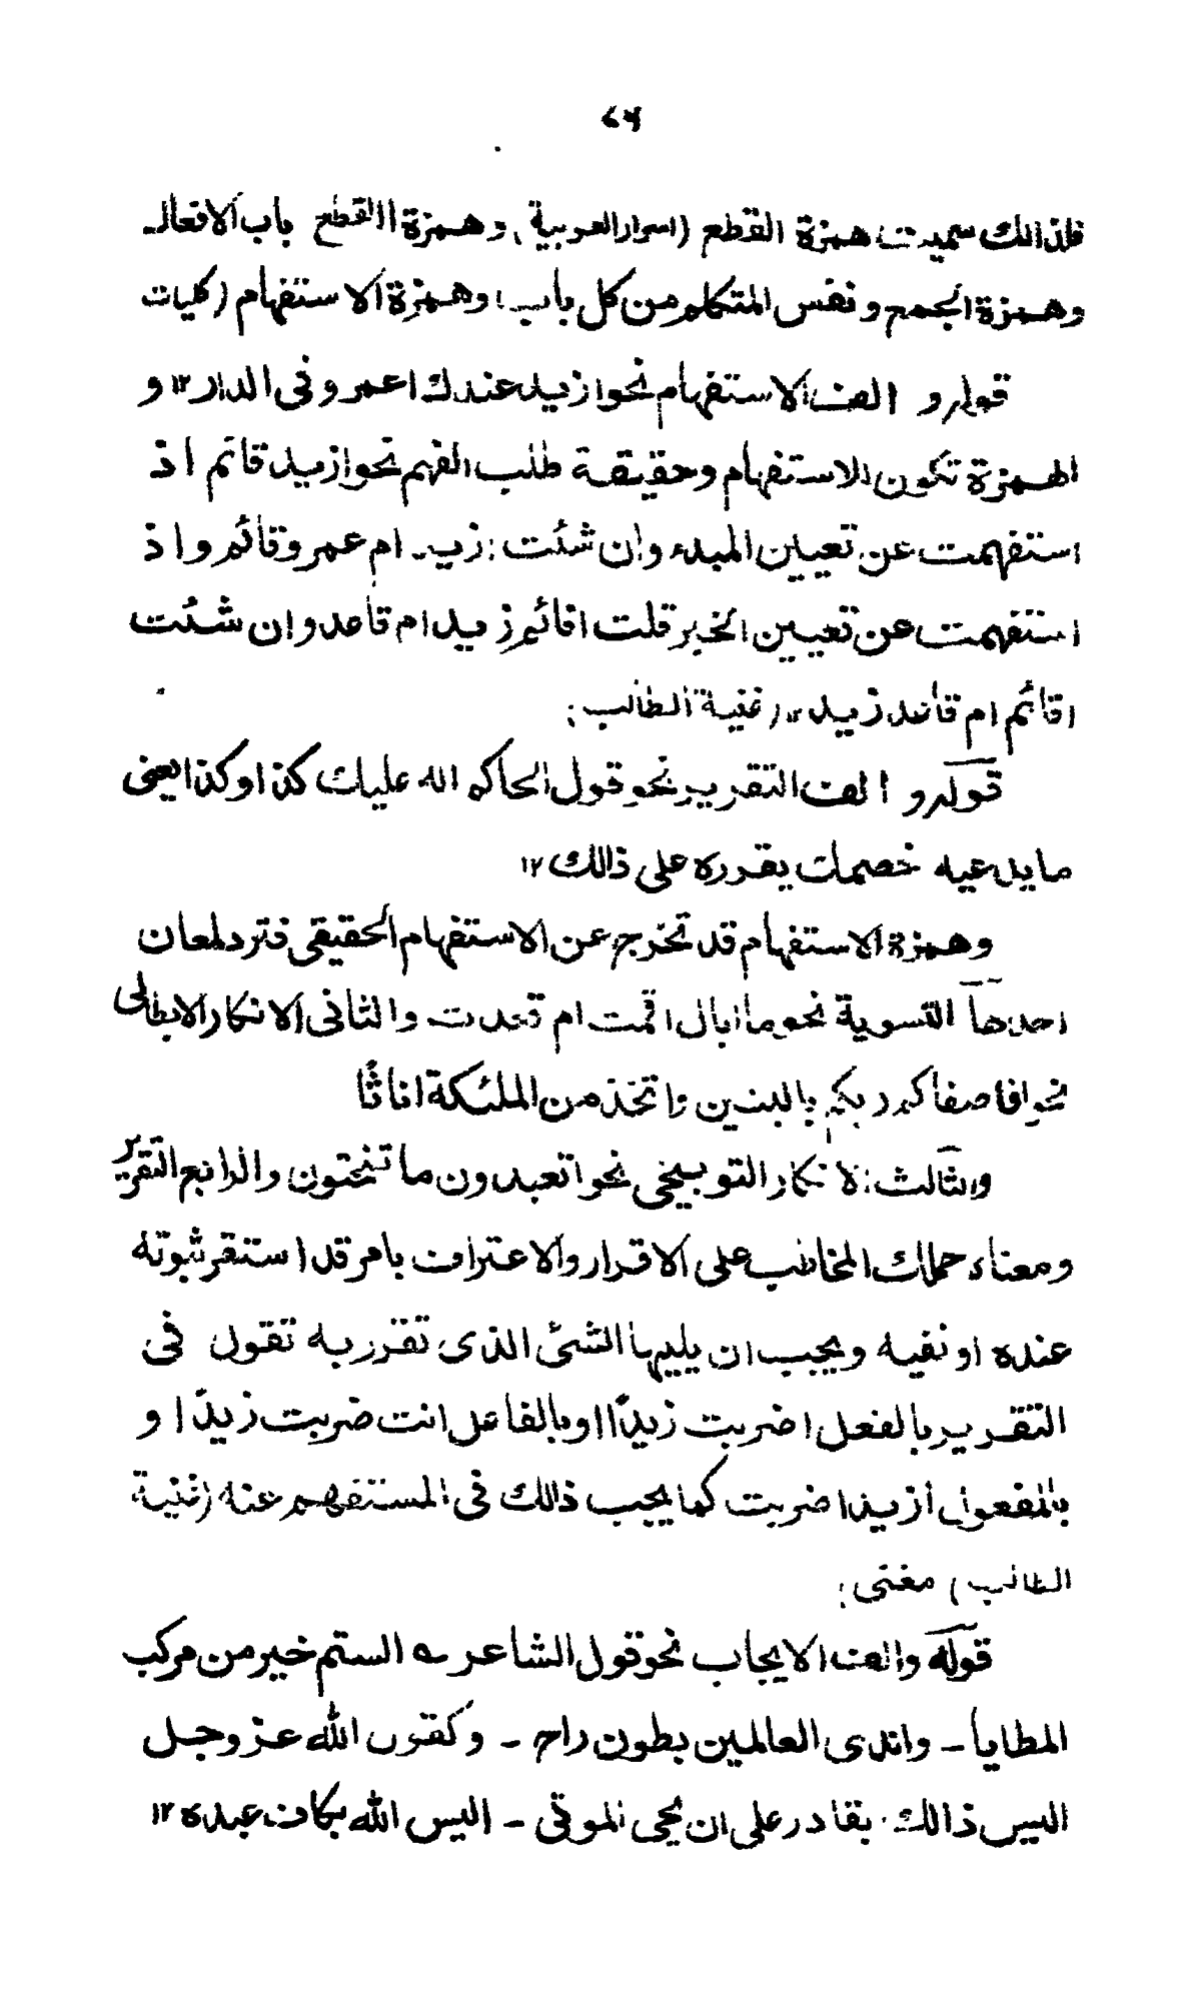 ۶۷
فلذالك سميت همزة القطع (اسرار العربية) وهمزة القطع باب الافعال
وهمزة الجمع ونفس المتكلم من كل باب، وهمزة الاستفهام (كليات
قوله و الف الاستفهام نحو ازيد عندك ام عمرو فى الدار ۱۲ و
الهمزة تكون للاستفهام وحقيقة طلب الفهم نحو ازيد قائم اذ
استفهمت عن تعيين المبدء وان شئت ازيد ام عمرو قائم واذ
استفهمت عن تعيين الخبر قلت اقائم زيد ام قاعد وان شئت
اقائم ام قاعد زيد ۱۲ (غنية الطالب)
قوله و الف التقرير نحو قول الحاكم الله عليك كذا وكذا يعنى
ما يدعيه خصمك يقرره على ذالك ۱۲
وهمزة الاستفهام قد تخرج عن الاستفهام الحقيقى فترد لمعان
احدها التسوية نحو ما ابال اقمت ام قعدت والثانى الانكار الابطالى
نحو افاصفاكم ربكم بالبنين واتخذ من الملئكة اناثًا
والثالث الانكار التوبيخى نحو اتعبدون ما تنحتون والرابع التقرير
ومعناه حملك المخاطب على الاقرار والاعتراف بامر قد استقر ثبوته
عنده او نفيه ويجب ان يليها الشئ الذى تقرر به تقول فى
التقرير بالفعل اضربت زيدًا او بالفاعل انت ضربت زيدًا و
بالمفعول ازيدا ضربت كما يجب ذالك فى المستفهم عنه (غنية
الطالب) مغنى؛
قوله والف الايجاب نحو قول الشاعر ؎ الستم خير من مركب
المطايا ـ واندى العالمين بطون راح ـ وكقول الله عز وجل
اليس ذالك بقادر على ان يحى الموتى ـ اليس الله بكاف عبده ۱۲